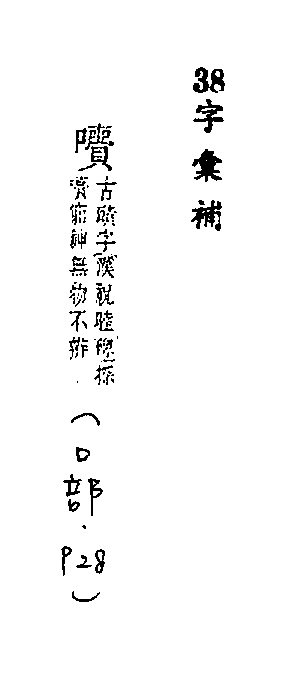 38字彙補
嚽古賾字漢祝睦碑探
賾窮神無物不辨
(口部.P28)